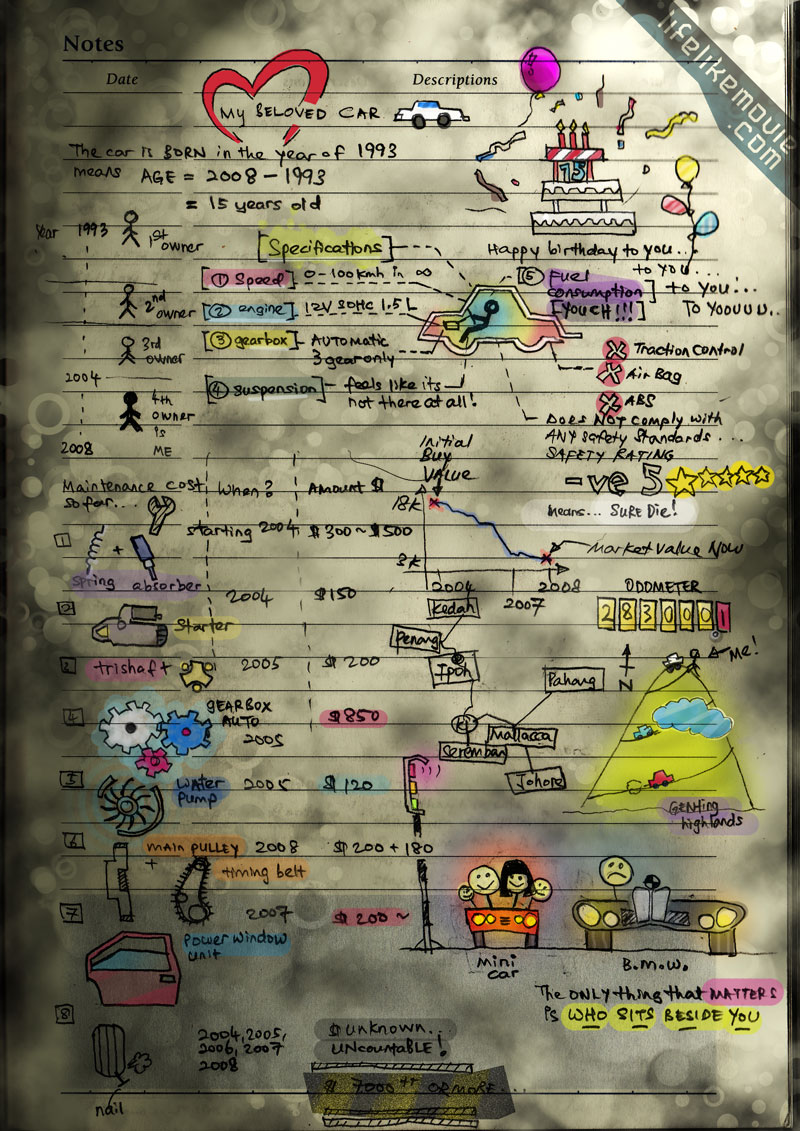 Notes
lifelikemovie
.com
Date
Descriptions
My BELOVED CAR
The car is BORN in the year of 1993
means AGE = 2008 - 1993
= 15 years old
15
Year 1993
1st owner
Happy birthday to you..
to you....
to you...
To Yoouuu..
[Specifications]
[① Speed] 0-100kmh in ∞
2nd owner
[② engine] 12V SOHC 1.5L
[⑤ Fuel
consumption]
[YOUCH!!!]
3rd owner
[③ gearbox] AUTOMATIC
3 gear only
X Traction Control
X Air Bag
X ABS
2004
[④ Suspension] feels like its
not there at all!
4th
owner
is
ME
2008
DOES NOT comply with
ANY safety standards...
SAFETY RATING
-ve 5
Means... SURE DIE!
Initial
Buy
Value
18K
3K
Market Value NOW
2004
2007
2008
Maintenance cost
so far....
When?
Amount $
1
spring + absorber
starting 2004
$300~$500
2
Starter
2004
$150
3
trishaft
2005
$200
4
GEARBOX
AUTO
2005
$850
5
Water
Pump
2005
$120
6
MAIN PULLEY
+
timing belt
2008
$200+180
7
Power window
unit
2007
$200~
8
nail
2004, 2005,
2006, 2007
2008
$unknown..
UNCOUNTABLE!
$ 7000++ OR MORE...
ODOMETER
2830001
Kedah
Penang
Ipoh
KL
Seremban
Mallacca
Pahang
Johore
N
Me!
Genting
highlands
Mini
car
B.M.W.
The ONLY thing that MATTERS
is WHO SITS BESIDE YOU